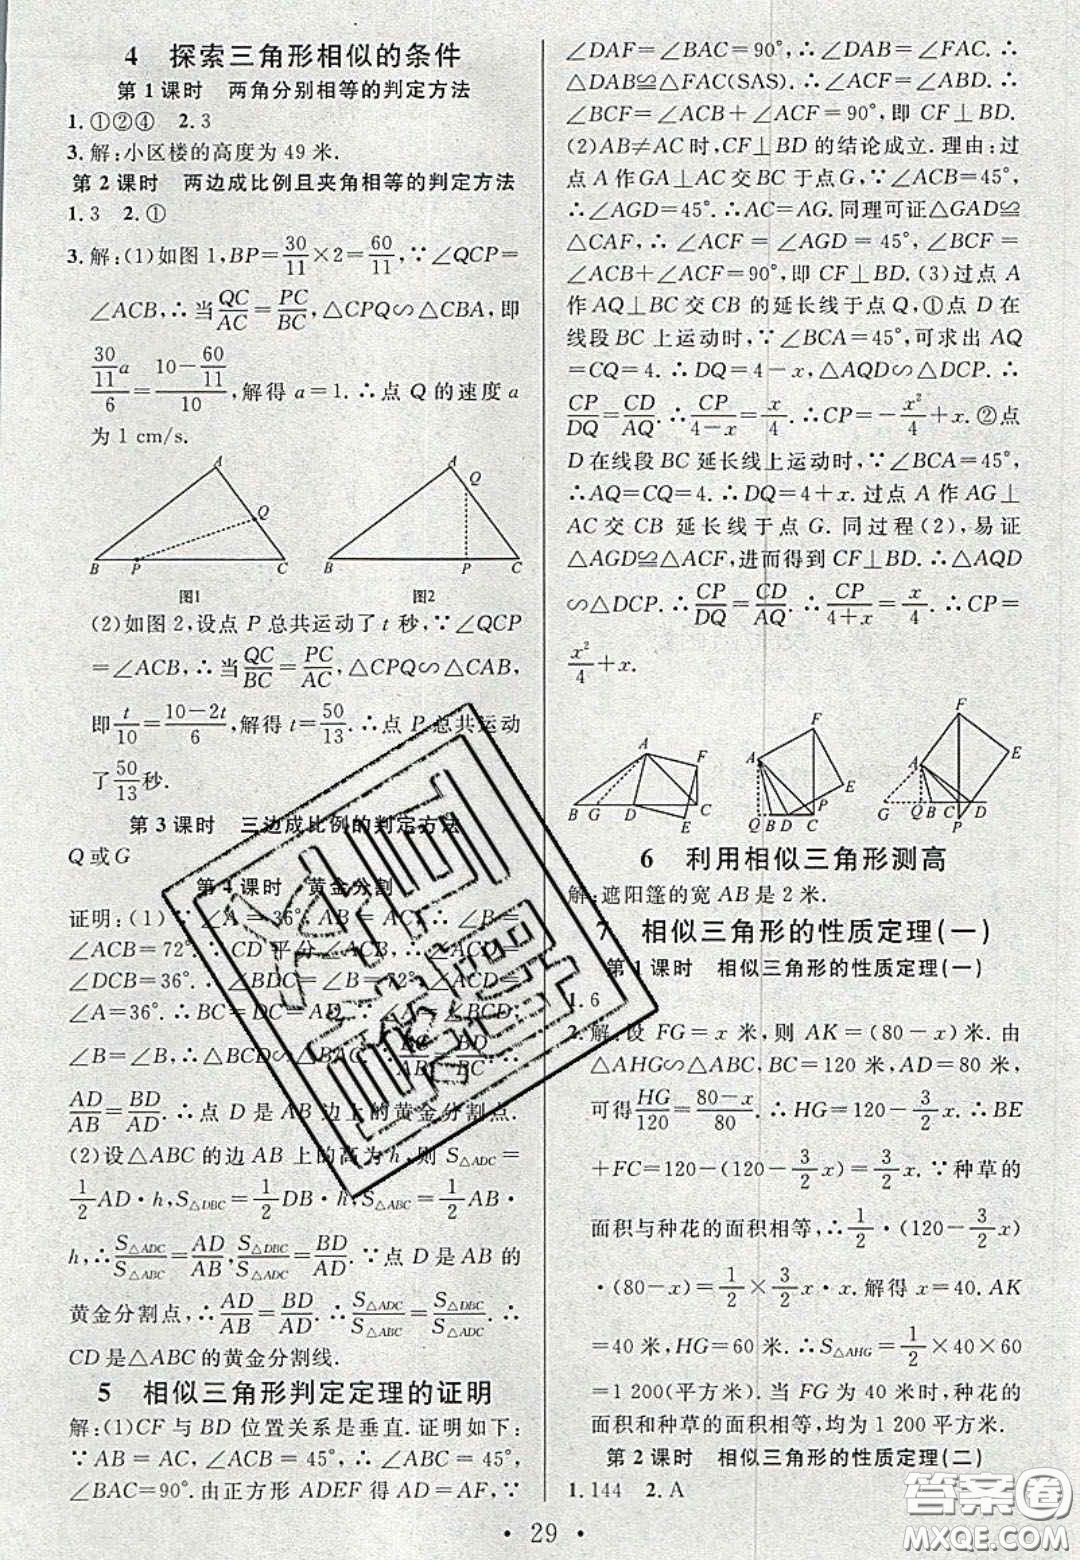 4 探索三角形相似的条件
第1课时 两角分别相等的判定方法
1.①②④ 2.3
3.解:小区楼的高度为49米.
第2课时 两边成比例且夹角相等的判定方法
1.3 2.①
3.解:(1)如图1,BP=30/11×2=60/11,∵∠QCP=
∠ACB,∴当QC/AC=PC/BC,△CPQ∽△CBA,即
(30/11 a)/6=(10-60/11)/10,解得a=1.∴点Q的速度a
为1 cm/s.
A Q B P C
图1
A Q B P C
图2
(2)如图2,设点P总共运动了t秒,∵∠QCP
=∠ACB,∴当QC/BC=PC/AC,△CPQ∽△CAB,
即t/10=(10-2t)/6,解得t=50/13.∴点P总共运动
了50/13秒.
第3课时 三边成比例的判定方法
Q或G
第4课时 黄金分割
证明:(1)∵∠A=36°,AB=AC,∴∠B=
∠ACB=72°.∵CD平分∠ACB,∴∠ACD=
∠DCB=36°.∴∠BDC=∠B=72°,∠ACD=
∠A=36°.∴BC=DC=AD.∵∠A=∠BCD,
∠B=∠B,∴△BCD∽△BAC.∴BC/AB=BD/BC.∴
AD/AB=BD/AD.∴点D是AB边上的黄金分割点.
(2)设△ABC的边AB上的高为h,则S△ADC=
1/2AD·h,S△DBC=1/2DB·h,S△ABC=1/2AB·
h,∴S△ADC/S△ABC=AD/AB,S△DBC/S△ADC=BD/AD.∵点D是AB的
黄金分割点,∴AD/AB=BD/AD.∴S△ADC/S△ABC=S△DBC/S△ADC.∴
CD是△ABC的黄金分割线.
5 相似三角形判定定理的证明
解:(1)CF与BD位置关系是垂直.证明如下:
∵AB=AC,∠ACB=45°,∴∠ABC=45°,
∠BAC=90°.由正方形ADEF得AD=AF,∵
∠DAF=∠BAC=90°,∴∠DAB=∠FAC.∴
△DAB≌△FAC(SAS).∴∠ACF=∠ABD.∴
∠BCF=∠ACB+∠ACF=90°,即CF⊥BD.
(2)AB≠AC时,CF⊥BD的结论成立.理由:过
点A作GA⊥AC交BC于点G,∵∠ACB=45°,
∴∠AGD=45°.∴AC=AG.同理可证△GAD≌
△CAF,∴∠ACF=∠AGD=45°,∠BCF=
∠ACB+∠ACF=90°,即CF⊥BD.(3)过点A
作AQ⊥BC交CB的延长线于点Q,①点D在
线段BC上运动时,∵∠BCA=45°,可求出AQ
=CQ=4.∴DQ=4-x,△AQD∽△DCP.∴
CP/DQ=CD/AQ.∴CP/(4-x)=x/4.∴CP=-x²/4+x.②点
D在线段BC延长线上运动时,∵∠BCA=45°,
∴AQ=CQ=4.∴DQ=4+x.过点A作AG⊥
AC交CB延长线于点G.同过程(2),易证
△AGD≌△ACF,进而得到CF⊥BD.∴△AQD
∽△DCP.∴CP/DQ=CD/AQ.∴CP/(4+x)=x/4.∴CP=
x²/4+x.
A F B G D C E
F A E P Q B D C
F E A G Q B C D P
6 利用相似三角形测高
解:遮阳篷的宽AB是2米.
7 相似三角形的性质定理(一)
第1课时 相似三角形的性质定理(一)
1.6
2.解:设FG=x米,则AK=(80-x)米.由
△AHG∽△ABC,BC=120米,AD=80米,
可得HG/120=(80-x)/80.∴HG=120-3/2x.∴BE
+FC=120-(120-3/2x)=3/2x.∵种草的
面积与种花的面积相等,∴1/2·(120-3/2x)
·(80-x)=1/2×3/2x·x.解得x=40.AK
=40米,HG=60米.∴S△AHG=1/2×40×60=
1 200(平方米).∴当FG为40米时,种花的
面积和种草的面积相等,均为1 200平方米.
第2课时 相似三角形的性质定理(二)
1.144 2.A
·29·
答案圈
MXQE.COM